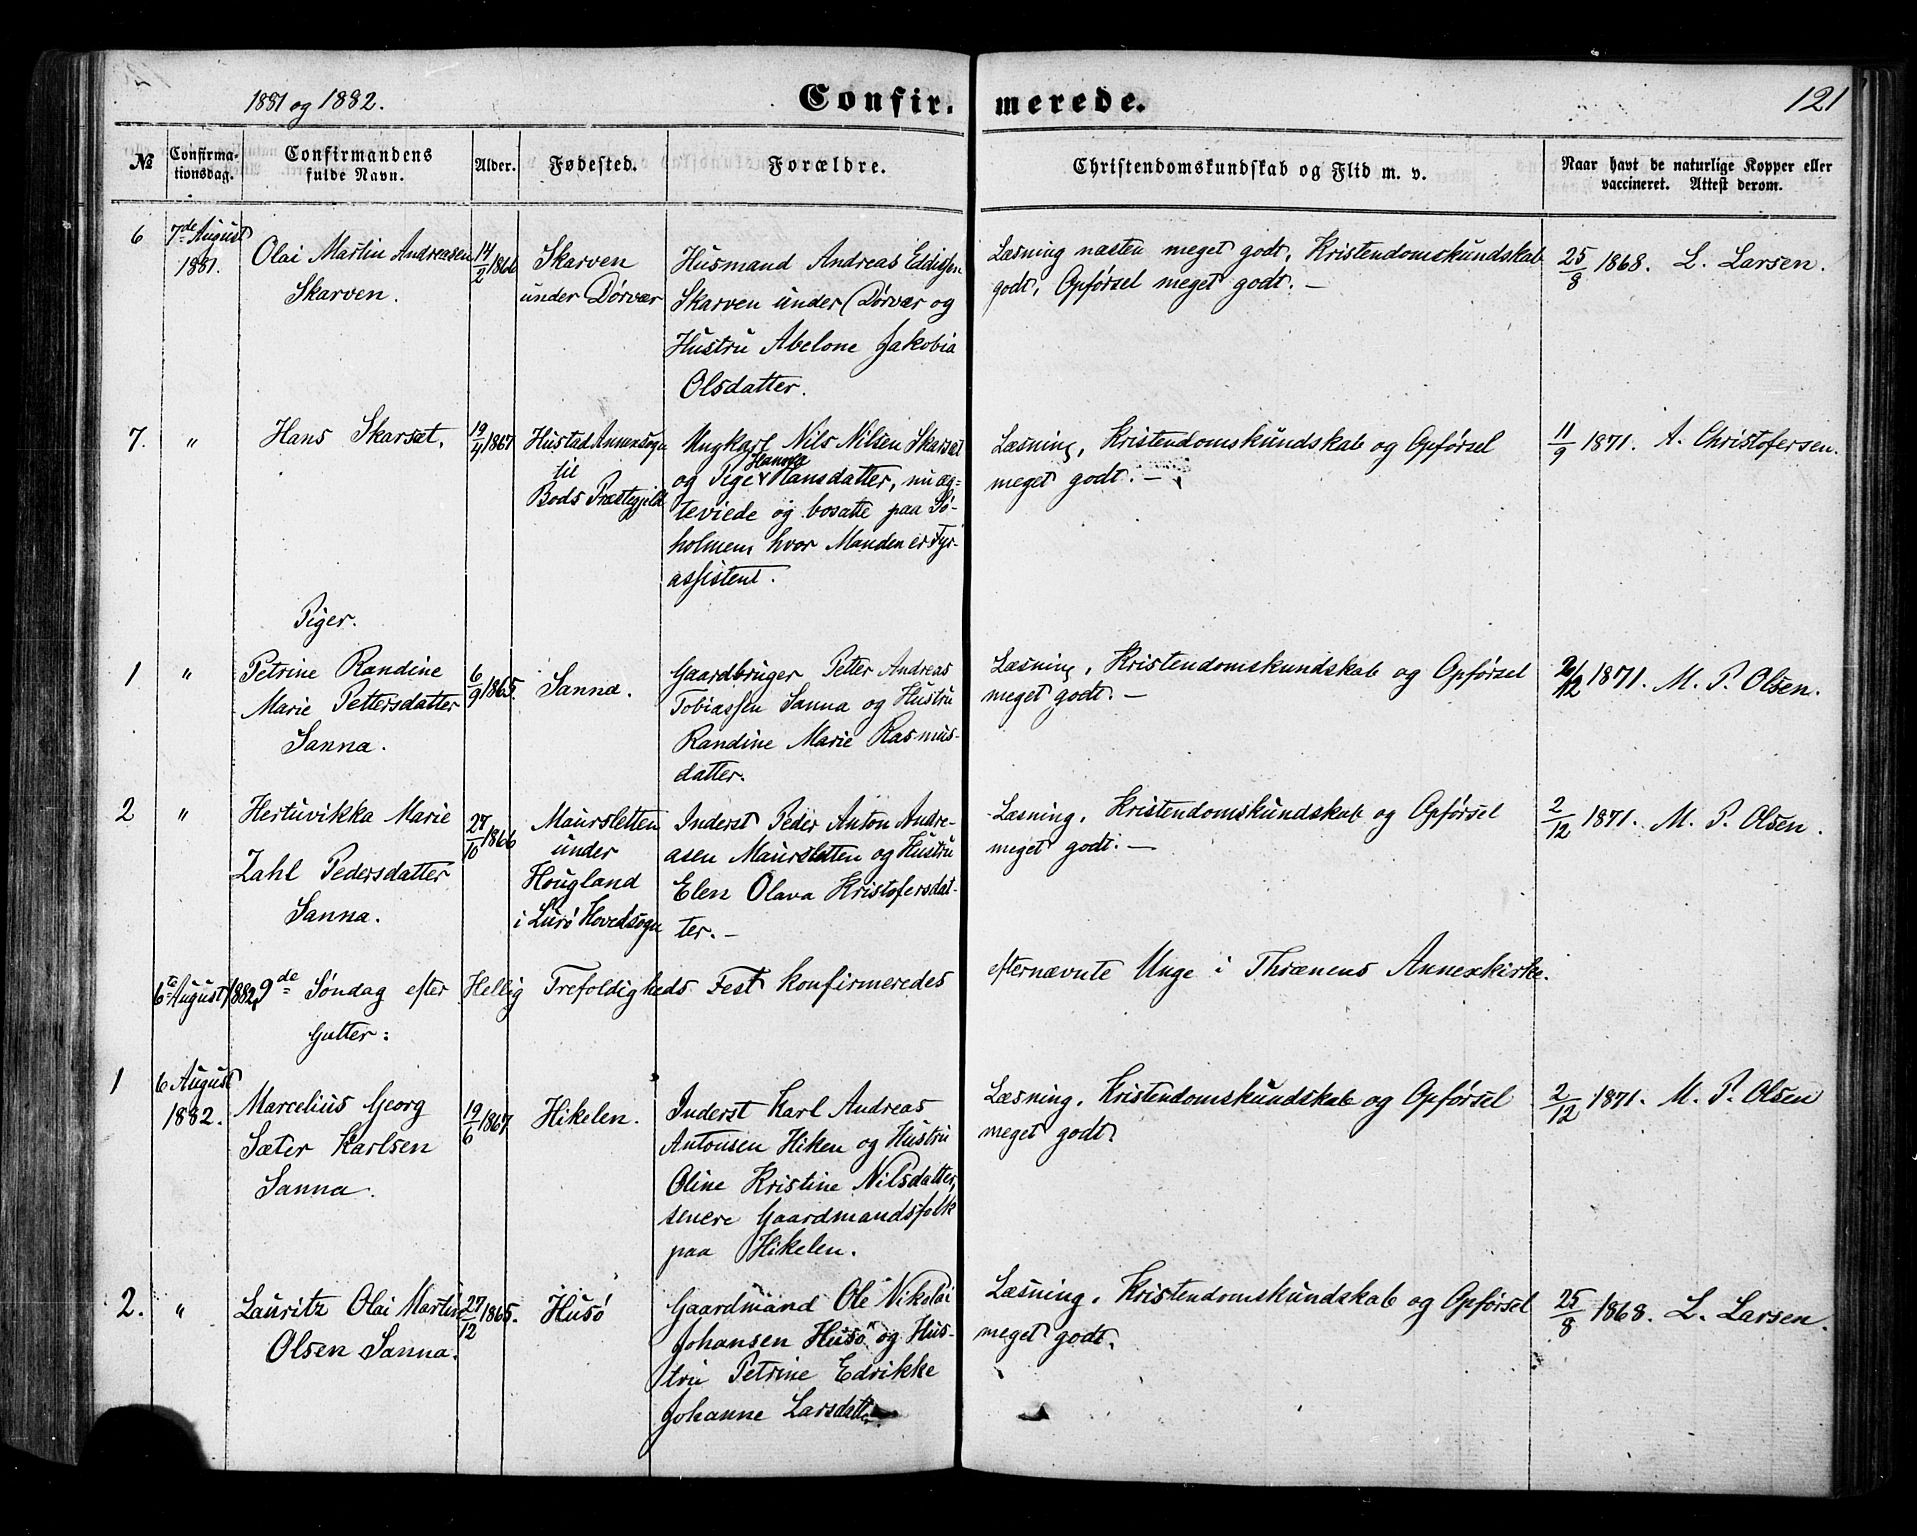 1881 og 1882.
Confir. merede.
121
№
Confirma-
tionsdag.
Confirmandens
fulde Navn.
Alder.
Fødested.
Forældre.
Christendomskundskab og Flid m. v.
Naar havt de naturlige Kopper eller
vaccineret. Attest derom.
6
7de August
1881.
Olai Martin Andreasen
Skarven.
14/2 1866
Skarven
under Dørvær
Husmand Andreas Eddissen
Skarven under Dørvær og
Hustru Abelone Jakobia
Olsdatter.
Læsning næsten meget godt, Kristendomskundskab
godt, Opførsel meget godt. —
25/8 1868. L. Larsen.
7.
"
Hans Skarsæt.
19/4 1867
Hustad Annexsogn
til
Bods Præstegjeld
Ungkarl Nils Nilsen Skarsæt
og Pige Hanna Hansdatter, nu æg-
teviede og bosatte paa Sø-
holmen, hvor Manden er Fyr-
assistent.
Læsning, Kristendomskundskab og Opførsel
meget godt. —
11/9 1871. A. Christofersen.
Piger.
1
"
Petrine Randine
Marie Pettersdatter
Sanna.
6/9 1865.
Sanna.
Gaardbruger Petter Andreas
Tobiassen Sanna og Hustru
Randine Marie Rasmus-
datter.
Læsning, Kristendomskundskab og Opførsel
meget godt. —
2/12 1871. M. P. Olsen.
2
"
Hertuvikka Marie
Zahl Pedersdatter
Sanna.
27/10 1866
Maursletten
under
Hougland
i Lurø Hovedsogn
Inderst Peder Anton Andre-
asen Maursletten og Hustru
Elen Olava Kristofersdat-
ter. —
Læsning, Kristendomskundskab og Opførsel
meget godt. —
2/12 1871. M. P. Olsen.
6te August 1882, 9de Søndag efter Hellig Trefoldigheds Fest konfirmeredes efternævnte Unge i Thrænens Annexkirke.
Gutter:
1
6 August
1882.
Marcelius Georg
Sæter Karlsen
Sanna.
19/6 1867
Hikelen.
Inderst Karl Andreas
Antonsen Hiken og Hustru
Oline Kristine Nilsdatter,
senere Gaardmandsfolk
paa Hikelen.
Læsning, Kristendomskundskab og Opførsel
meget godt
2/12 1871. M. P. Olsen
2.
"
Lauritz Olai Martin
Olsen Sanna.
27/12 1865.
Husø
Gaardmand Ole Nikolai
Johansen Husø og Hus-
tru Petrine Edrikke
Johanne Larsdatter
Læsning, Kristendomskundskab og Opførsel
meget godt.
25/8 1868. L. Larsen.